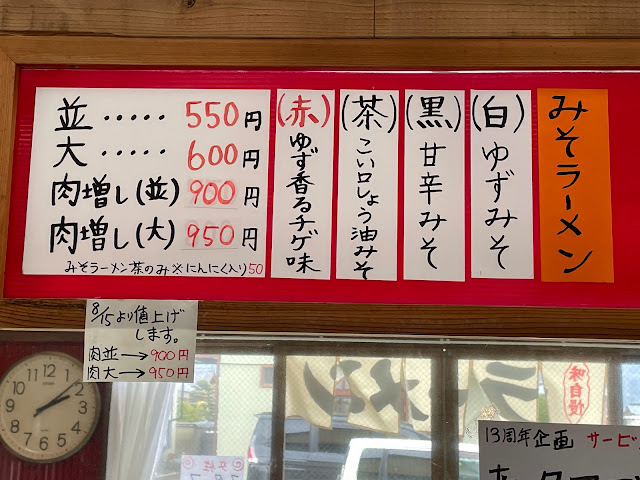 みそラーメン
(白)ゆずみそ
(黒)甘辛みそ
(茶)こい口しょう油みそ
(赤)ゆず香るチゲ味
並・・・・・550円
大・・・・・600円
肉増し(並)900円
肉増し(大)950円
みそラーメン茶のみ※にんにく入り50
8/15より値上げ
します。
肉並→900円
肉大→950円
味自慢
13周年企画 サービ